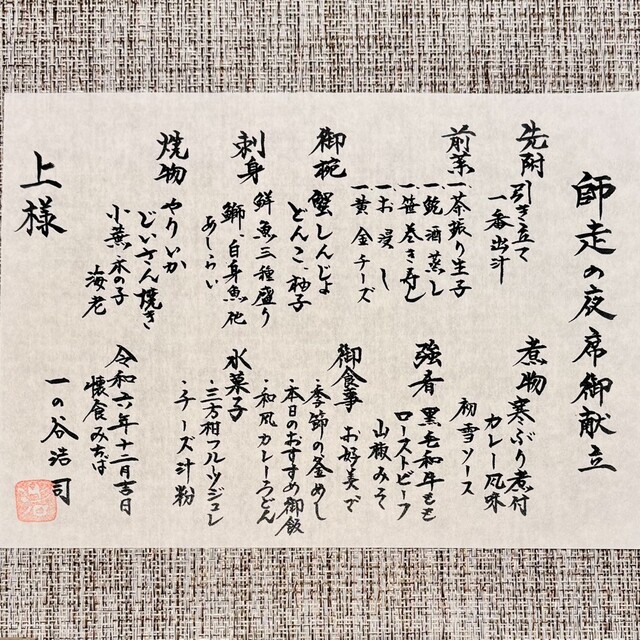 師走の夜席御献立
先附
引き立て
一番出汁
前菜
一、茶振り生子
一、鮑酒蒸し
一、笹巻き寿し
一、お浸し
一、黄金チーズ
御椀
蟹しんじょ
どんこ、柚子
刺身
鮮魚三種盛り
鰤、白身魚、他
あしらい
焼物
やりいか
じいさん焼き
小蕪、木の子
海老
上様
煮物
寒ぶり煮付
カレー風味
初雪ソース
強肴
黒毛和牛もも
ローストビーフ
山椒みそ
御食事
お好きで
・季節の釜めし
・本日のおすすめ御飯
・和風カレーうどん
水菓子
・三方柑フルーツジュレ
・チーズ汁粉
令和六年十二月吉日
懐食みちば
一の谷浩司